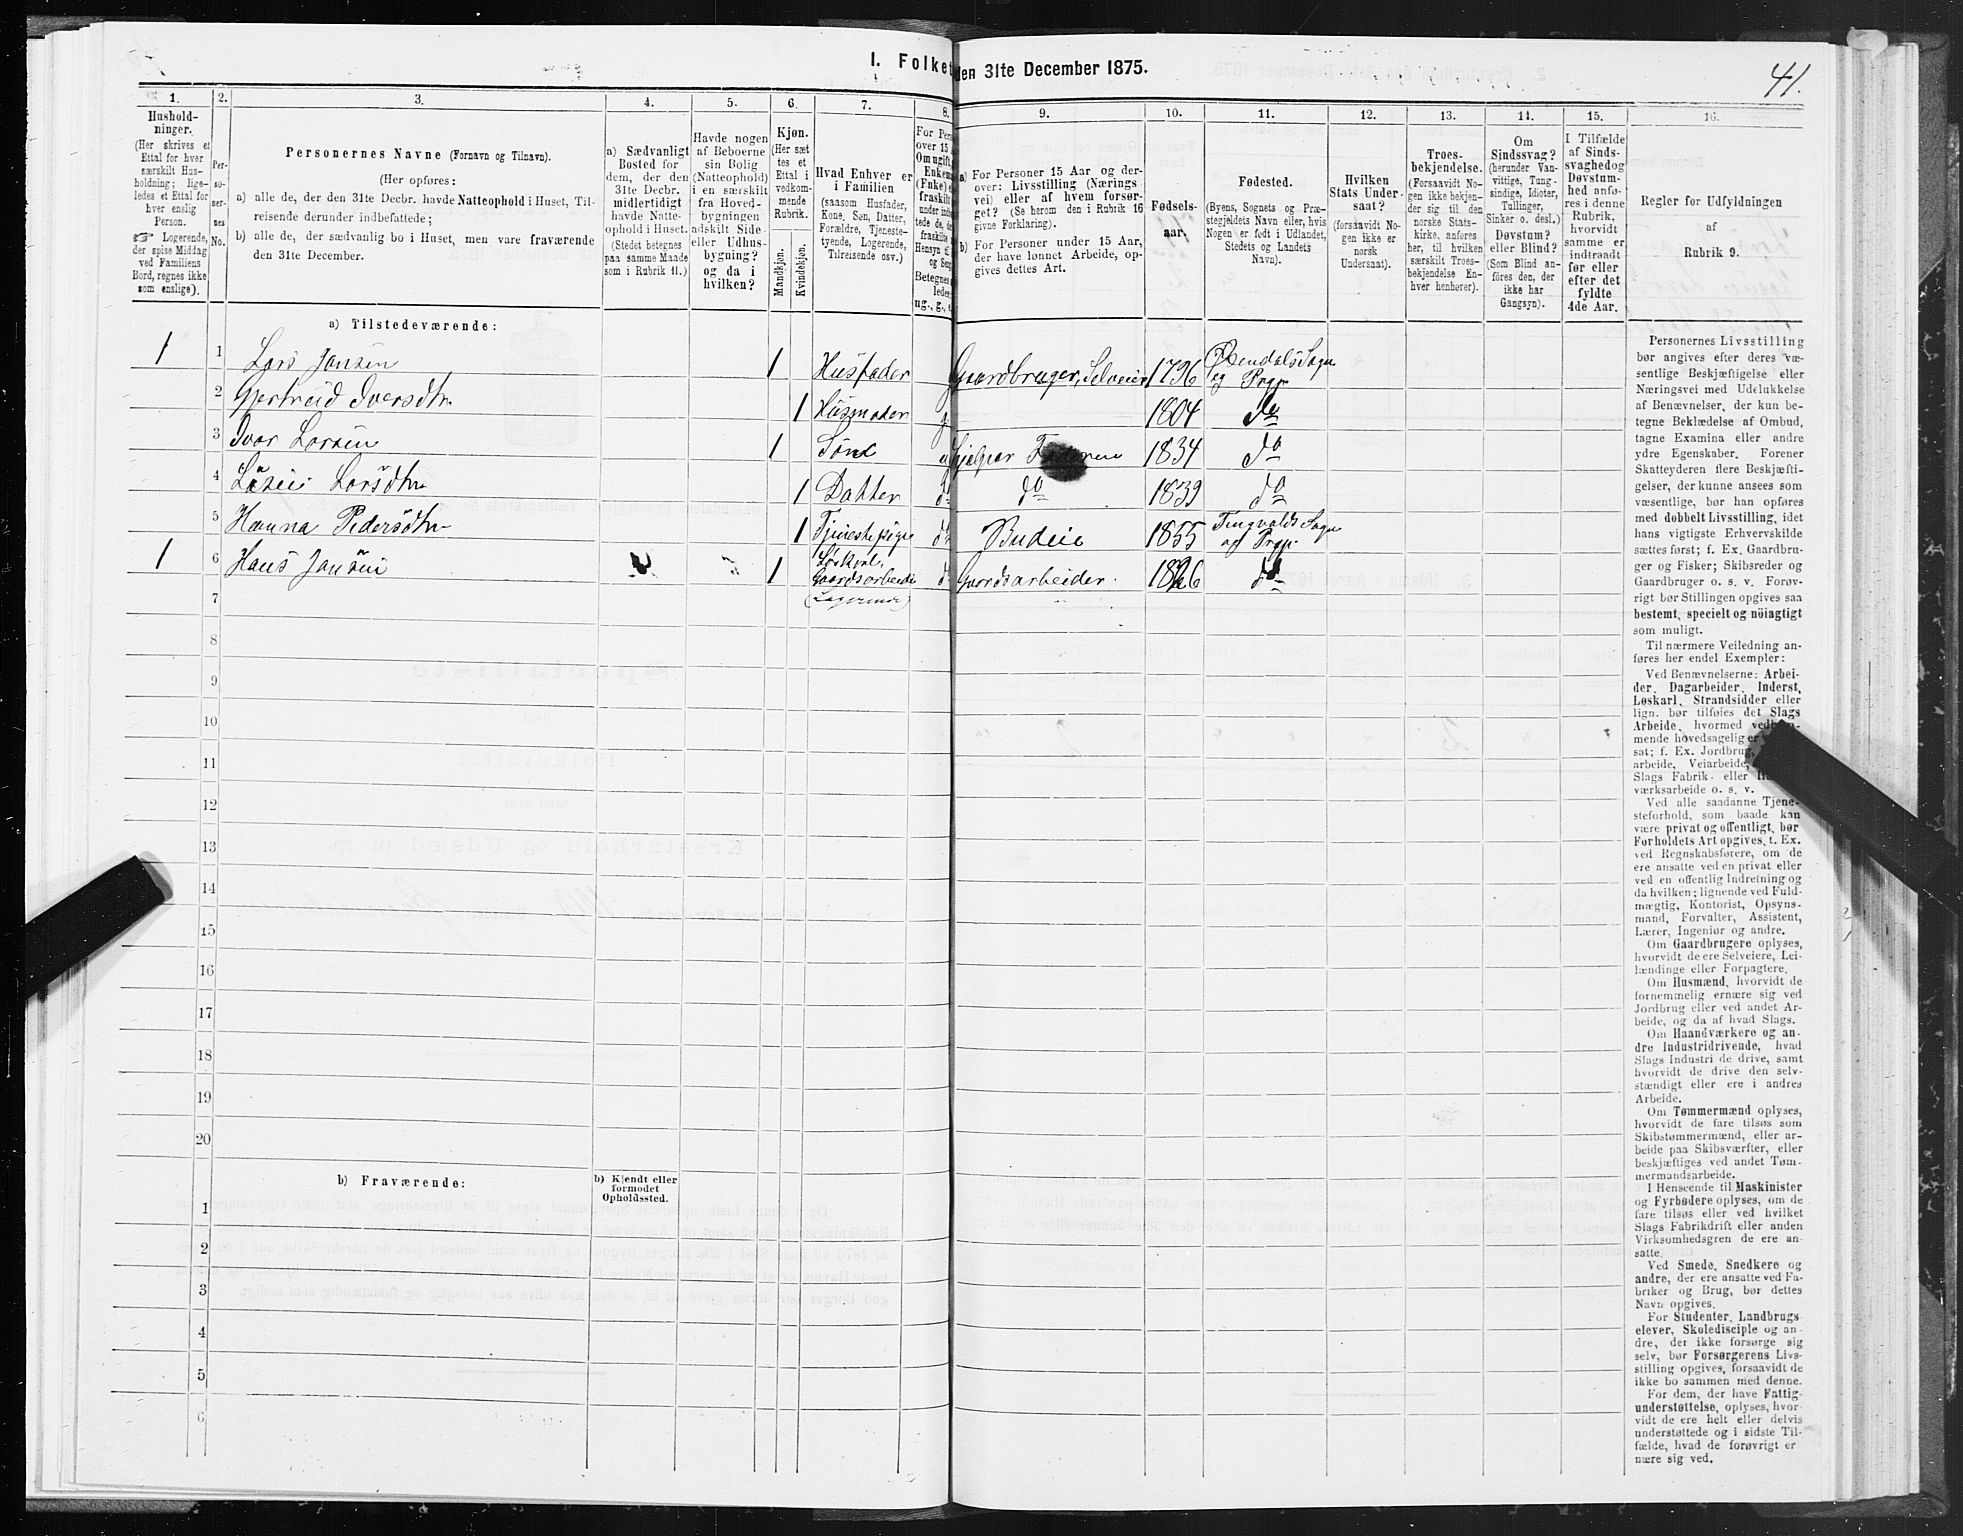 1. Folket
den 31te December 1875.
41.
1.
2.
3.
4.
5.
6.
7.
8.
9.
10.
11.
12.
13.
14.
15.
16.
Hushold-
ninger.
(Her skrives et
Ettal for hver
særskilt Hus-
holdning; lige-
ledes et Ettal for
hver enslig
Person.
☞ Logerende,
der spise Middag
ved Familiens
Bord, regnes ikke
som enslige).
Per-
so-
ner-
nes
No.
Personernes Navne (Fornavn og Tilnavn).
(Her opføres:
a) alle de, der den 31te Decbr. havde Natteophold i Huset, Til-
reisende derunder indbefattede;
b) alle de, der sædvanlig bo i Huset, men vare fraværende
den 31te December.
a) Sædvanligt
Bosted for
dem, der den
31te Decbr.
midlertidigt
havde Natte-
ophold i Huset.
(Stedet betegnes
paa samme Maade
som i Rubrik 11.)
Havde nogen
af Beboerne
sin Bolig
(Natteophold)
i en særskilt
fra Hoved-
bygningen
adskilt Side-
eller Udhus-
bygning?
og da i
hvilken?
Kjøn.
(Her sæt-
tes et
Ettal i
vedkom-
mende
Rubrik.
Mandkjøn.
Kvindekjøn.
Hvad Enhver er
i Familien
(saasom Husfader,
Kone, Søn, Datter,
Forældre, Tjeneste-
tyende, Logerende,
Tilreisende osv.)
For Pers
over 15 A
Om ugift,
Enkem
(Fnke) e
fraskilt
under indb
tede de, de
fraskilte
Hensyn til
og Seng
Betegnes
ledes
ug., g., e
a) For Personer 15 Aar og der-
over: Livsstilling (Nærings
vei) eller af hvem forsør-
get? (Se herom den i Rubrik 16
givne Forklaring).
b) For Personer under 15 Aar,
der have lønnet Arbeide, op-
gives dettes Art.
Fødsels-
aar.
Fødested.
(Byens, Sognets og Præ-
stegjeldets Navn eller, hvis
Nogen er født i Udlandet,
Stedets og Landets
Navn).
Hvilken
Stats Under-
saat?
(forsaavidt No-
gen ikke er
norsk
Undersaat).
Troes-
bekjendelse.
(Forsaavidt No-
gen ikke bekjen-
der sig til den
norske Stats-
kirke, anføres
her, til hvilken
særskilt Troes-
bekjendelse En-
hver henhører).
Om
Sindssvag?
(herunder Van-
vittige, Tung-
sindige, Idioter,
Tullinger,
Sinker o. desl.)
Døvstum?
eller Blind?
(Som Blind an-
føres den, der
ikke har
Gangsyn).
I Tilfælde
af Sinds-
svaghed og
Døvstum-
hed anfø-
res i denne
Rubrik,
hvorvidt
samme er
indtraadt
før eller
efter det
fyldte
4de Aar.
Regler for Udfyldningen
af
Rubrik 9.
a) Tilstedeværende:
1 1 Lars Jansen 1 Husfader Gaardbruger, Selveier 1796 Øxendals Sogn
og Prgj.
2 Gjertreid Iversdtr. 1 Husmoder g 1804 do
3 Ivar Larsen 1 Søn Hjelper Faderen 1834 do
4 Larsdtr. 1 Datter do do 1839 do
5 Hanna Pedersdtr 1 Tjenestepige do Budeie 1855 Tingvolds Sogn
og Prgj.
1 6 Hans Jansen 1 Løskarl
Gaardsarbeide Gaardsarbeider. do
7 (Logerende)
8
9
10
11
12
13
14
15
16
17
18
19
20
b) Fraværende:
b) Kjendt eller
formodet
Opholdssted.
1
2
3
4
5
6
Personernes Livsstilling
bør angives efter deres væ-
sentlige Beskjæftigelse eller
Næringsvei med Udelukkelse
af Benævnelser, der kun be-
tegne Beklædelse af Ombud,
tagne Examina eller andre
ydre Egenskaber. Forener
Skatteyderen flere Beskjæfti-
gelser, der kunne ansees som
væsentlige, bør han opføres
med dobbelt Livsstilling, idet
hans vigtigste Erhvervskilde
sættes først; f. Ex. Gaardbru-
ger og Fisker; Skibsreder og
Gaardbruger o. s. v. Forøv-
rigt bør Stillingen opgives saa
bestemt, specielt og nöiagtigt
som muligt.
Til nærmere Veiledning an-
føres her endel Exempler:
Ved Benævnelserne: Arbei-
der, Dagarbeider, Inderst,
Løskarl, Strandsidder eller
lign. bør tilføies det Slags
Arbeide, hvormed vedkom-
mende hovedsagelig er
sat; f. Ex. Jordbrug,
arbeide, Veiarbeide,
Slags Fabrik- eller
værksarbeide o. s. v.
Ved alle saadanne Tjene-
steforhold, som baade kan
være privat og offentligt, bør
Forholdets Art opgives, t. Ex.
ved Regnskabsførere, om de
ere ansatte ved en privat eller
ved en offentlig Indretning og
da hvilken; lignende ved Fuld-
mægtig, Kontorist, Opsyns-
mand, Forvalter, Assistent,
Lærer, Ingeniør og andre.
Om Gaardbrugere oplyses,
hvorvidt de ere Selveiere, Lei-
lændinge eller Forpagtere.
Om Husmænd, hvorvidt de
fornemmelig ernære sig ved
Jordbrug eller ved andet Ar-
beide, og da af hvad Slags.
Om Haandværkere og an-
dre Industridrivende, hvad
Slags Industri de drive, samt
hvorvidt de drive den selv-
stændigt eller ere i andres
Arbeide.
Om Tømmermænd oplyses,
hvorvidt de fare tilsøs som
Skibstømmermænd, eller ar-
beide paa Skibsværfter, eller
beskjæftiges ved andet Tøm-
mermandsarbeide.
I Henseende til Maskinister
og Fyrbødere oplyses, om de
fare tilsøs eller ved hvilket
Slags Fabrikdrift eller anden
Virksomhedsgren de ere an-
satte.
Ved Smede, Snedkere og
andre, der ere ansatte ved Fa-
briker og Brug, bør dettes
Navn opgives.
For Studenter, Landbrugs
elever, Skoledisciple og an-
dre, der ikke forsørge sig
selv, bør Forsørgerens Livs-
stilling opgives, forsaavidt de
ikke bo sammen med denne.
For dem, der have Fattig-
understøttelse, oplyses, hvor-
vidt de ere helt eller delvis
understøttede og i sidste Til-
fælde, hvad de forøvrigt er
nære sig ved.